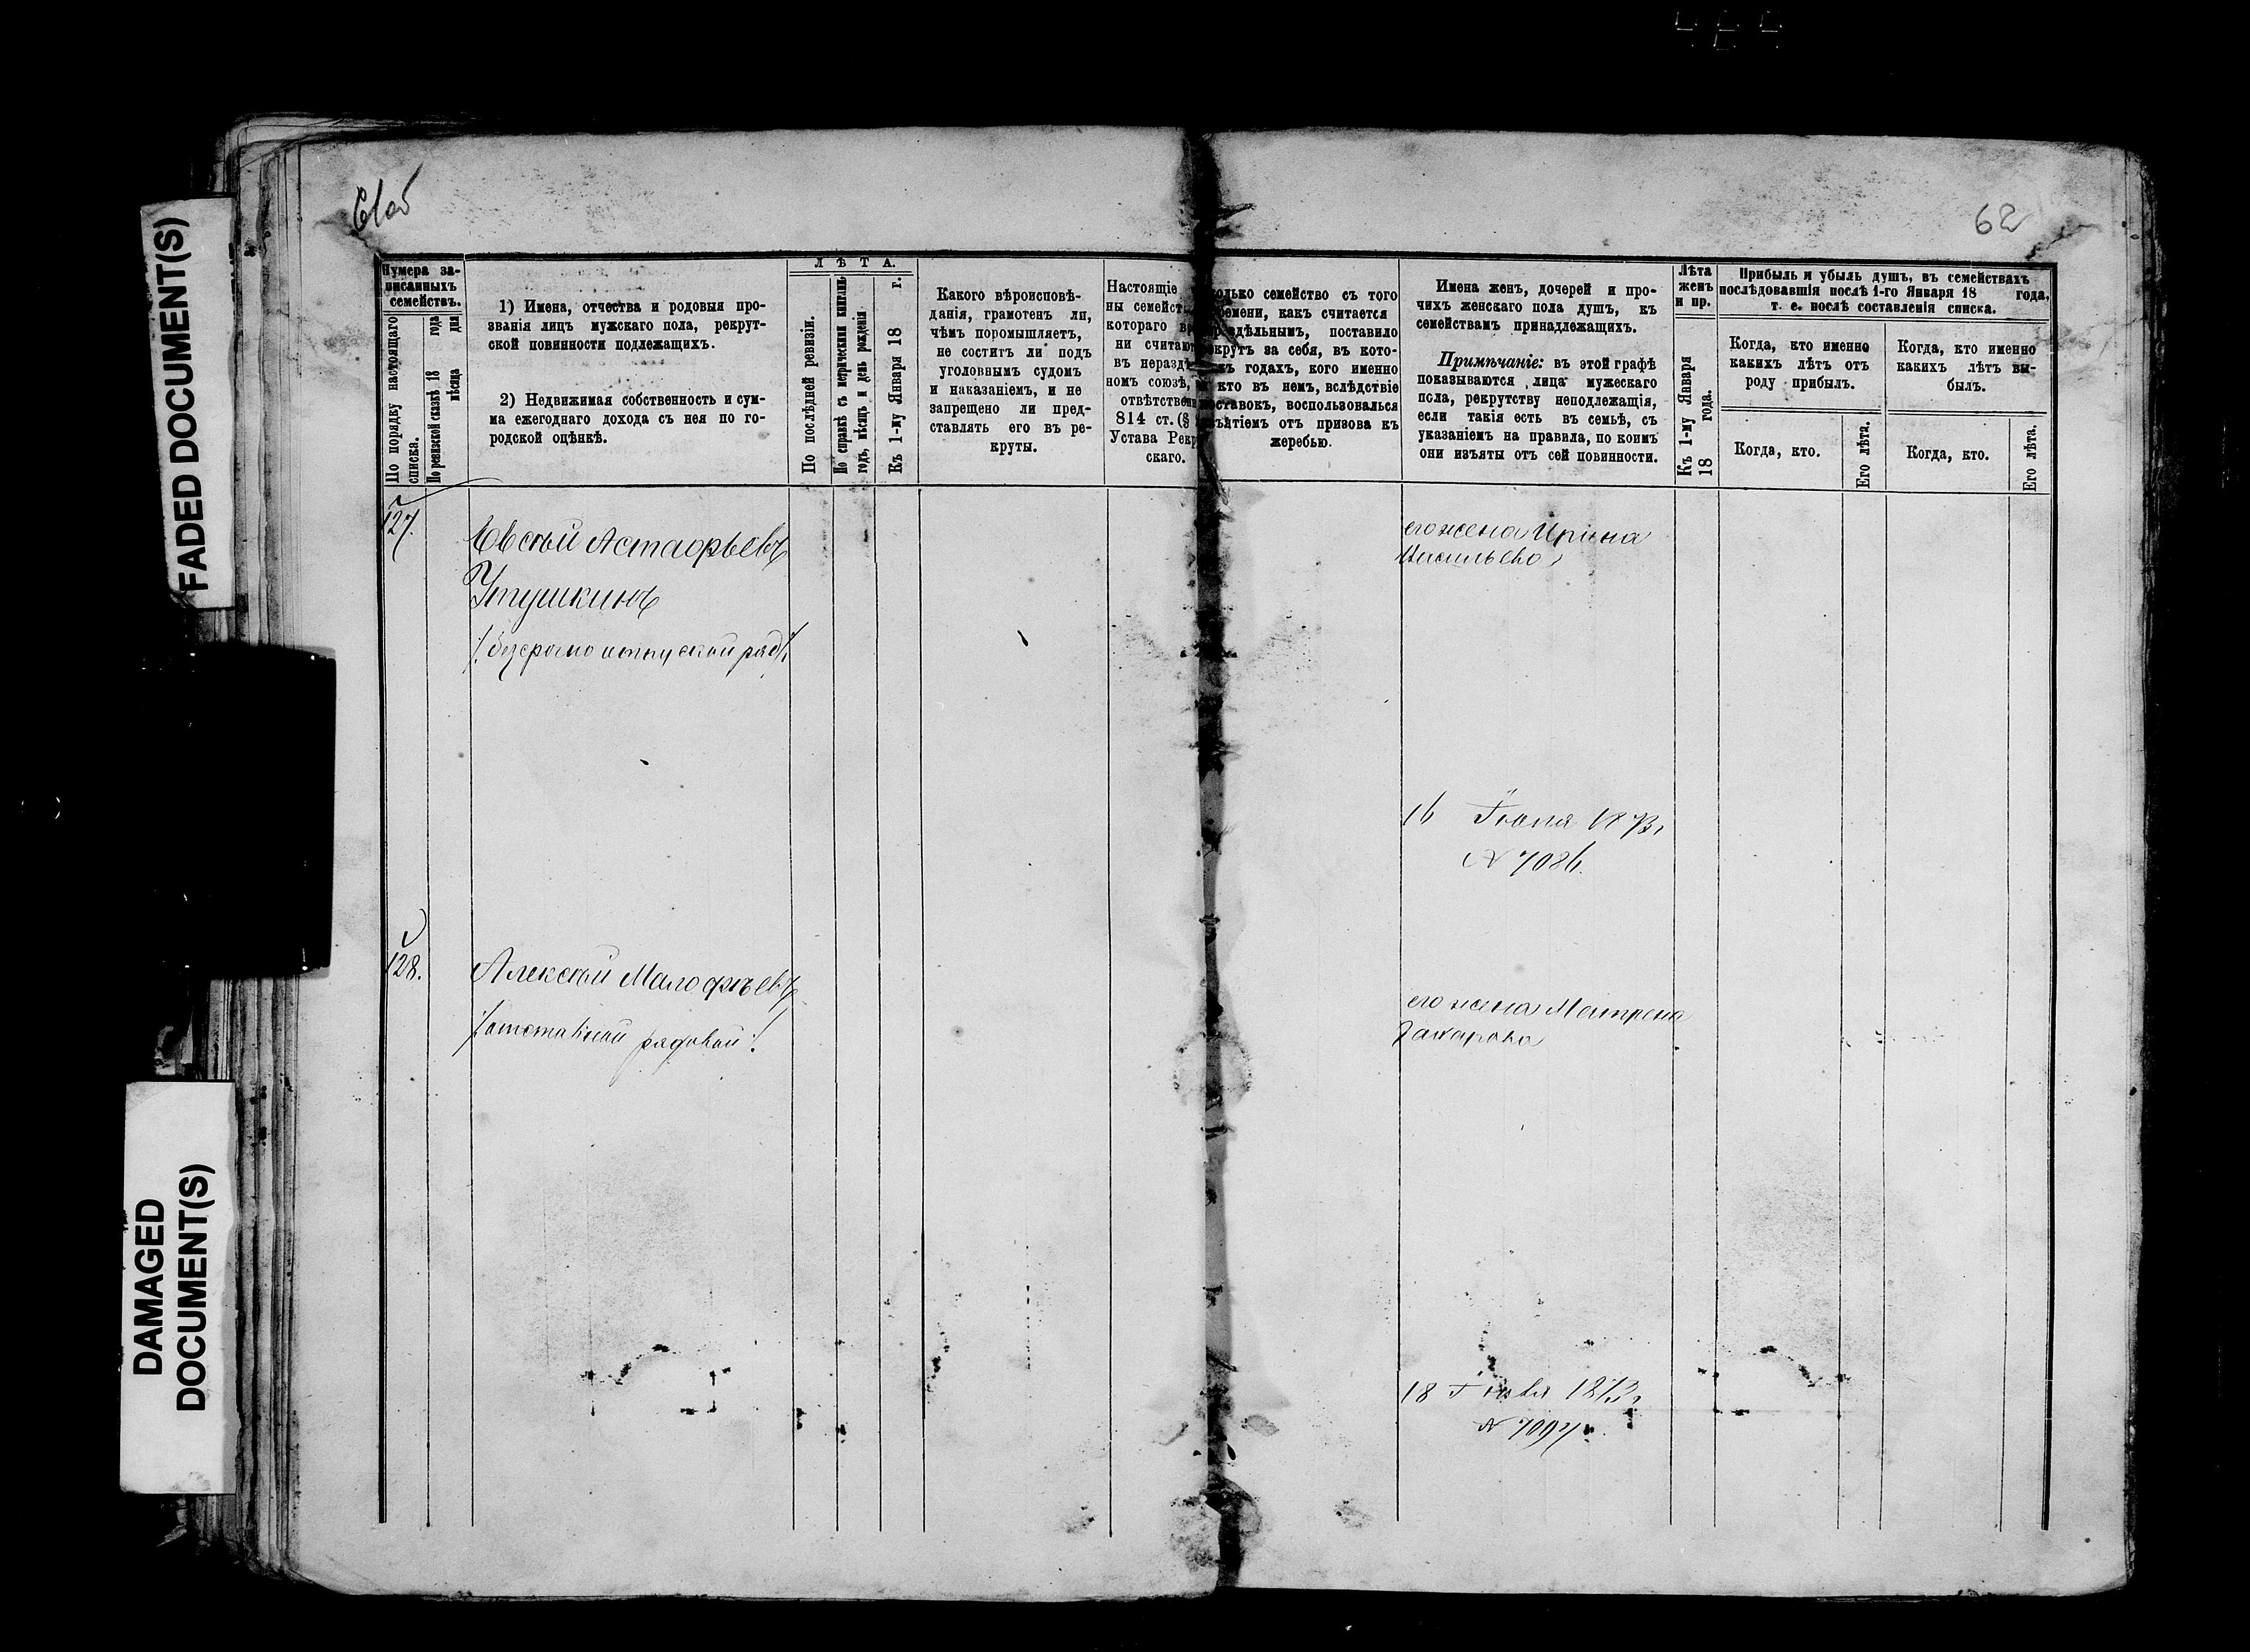 61об
62
FADED DOCUMENT(S)
DAMAGED
DOCUMENT(S)
Нумера за-
писанныхъ
семействъ.
По порядку настоящаго
списка.
По ревизской сказкѣ 18 года
мѣсяца дня
1) Имена, отчества и родовыя про-
званія лицъ мужскаго пола, рекрут-
ской повинности подлежащихъ.
2) Недвижимая собственность и сум-
ма ежегоднаго дохода съ нея по го-
родской оцѣнкѣ.
ЛѢТА.
По послѣдней ревизіи.
По справкѣ съ метрическими книгами
годъ, мѣсяцъ и день рожденія
Къ 1-му Января 18 г.
Какого вѣроисповѣ-
данія, грамотенъ ли,
чѣмъ поромышляетъ,
не соститъ ли подъ
уголовнымъ судомъ
и наказаніемъ, и не
запрещено ли пред-
ставлять его въ ре-
круты.
Настоящіе
ны семейст
котораго в
ни считаю
въ нераздѣ
номъ союзѣ,
отвѣтствен
814 ст. (§
Устава Рекр
скаго.
олько семейство съ того
ремени, какъ считается
раздѣльнымъ, поставило
екрутъ за себя, въ кото-
хъ годахъ, кого именно
кто въ немъ, вслѣдствіе
оставокъ, воспользовался
зъятіемъ отъ призова къ
жеребью.
Имена женъ, дочерей и про-
чихъ женскаго пола душъ, къ
семействамъ принадлежащихъ.
Примѣчаніе: въ этой графѣ
показываются лица мужескаго
пола, рекрутству неподлежащія,
если такія есть въ семьѣ, съ
указаніемъ на правила, по коимъ
они изъяты отъ сей повинности.
Лѣта
женъ
и пр.
Къ 1-му Января
18 года.
Прибыль и убыль душъ, въ семействахъ
послѣдовавшія послѣ 1-го Января 18 года,
т. е. послѣ составленія списка.
Когда, кто именно
какихъ лѣтъ отъ
роду прибылъ.
Когда, кто именно
какихъ лѣтъ вы-
былъ.
Когда, кто.
Его лѣта.
Когда, кто.
Его лѣта.
127.
Евсѣй Астафьевъ
Утушкинъ
/: безсрочно отпускной ряд:/
его жена Ирина
Васильева
16 Іюня 1873г
№ 7086.
128.
Алексѣй Малофѣевъ
/: отставной рядовой :/
его жена Матрена
Захарова
18